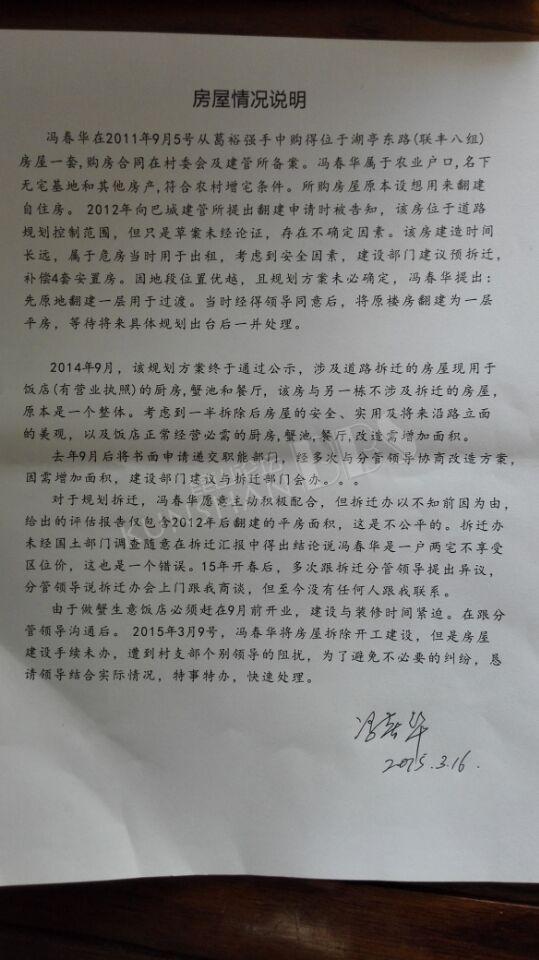 房屋情况说明
冯春华在2011年9月5号从葛裕强手中购得位于湖亭东路(联丰八组)
房屋一套,购房合同在村委会及建管所备案。冯春华属于农业户口,名下
无宅基地和其他房产,符合农村增宅条件。所购房屋原本设想用来翻建
自住房。2012年向巴城建管所提出翻建申请时被告知，该房位于道路
规划控制范围，但只是草案未经论证，存在不确定因素。该房建造时间
长远，属于危房当时用于出租，考虑到安全因素，建设部门建议预拆迁，
补偿4套安置房。因地段位置优越，且规划方案未必确定，冯春华提出：
先原地翻建一层用于过渡。当时经得领导同意后，将原楼房翻建为一层
平房，等待将来具体规划出台后一并处理。
2014年9月，该规划方案终于通过公示，涉及道路拆迁的房屋现用于
饭店(有营业执照)的厨房,蟹池和餐厅，该房与另一栋不涉及拆迁的房屋，
原本是一个整体。考虑到一半拆除后房屋的安全、实用及将来沿路立面
的美观，以及饭店正常经营必需的厨房,蟹池,餐厅,改造需增加面积。
去年9月后将书面申请递交职能部门，经多次与分管领导协商改造方案，
因需增加面积，建设部门建议与拆迁部门会办。。。
对于规划拆迁，冯春华愿意主动积极配合，但拆迁办以不知前因为由，
给出的评估报告仅包含2012年后翻建的平房面积，这是不公平的。拆迁办
未经国土部门调查随意在拆迁汇报中得出结论说冯春华是一户两宅不享受
区位价，这也是一个错误。15年开春后，多次跟拆迁分管领导提出异议，
分管领导说拆迁办会上门跟我商谈，但至今没有任何人跟我联系。
由于做蟹生意饭店必须赶在9月前开业，建设与装修时间紧迫。在跟分
管领导沟通后。2015年3月9号，冯春华将房屋拆除开工建设，但是房屋
建设手续未办，遭到村支部个别领导的阻扰，为了避免不必要的纠纷，恳
请领导结合实际情况，特事特办，快速处理。
冯春华
2015.3.16.